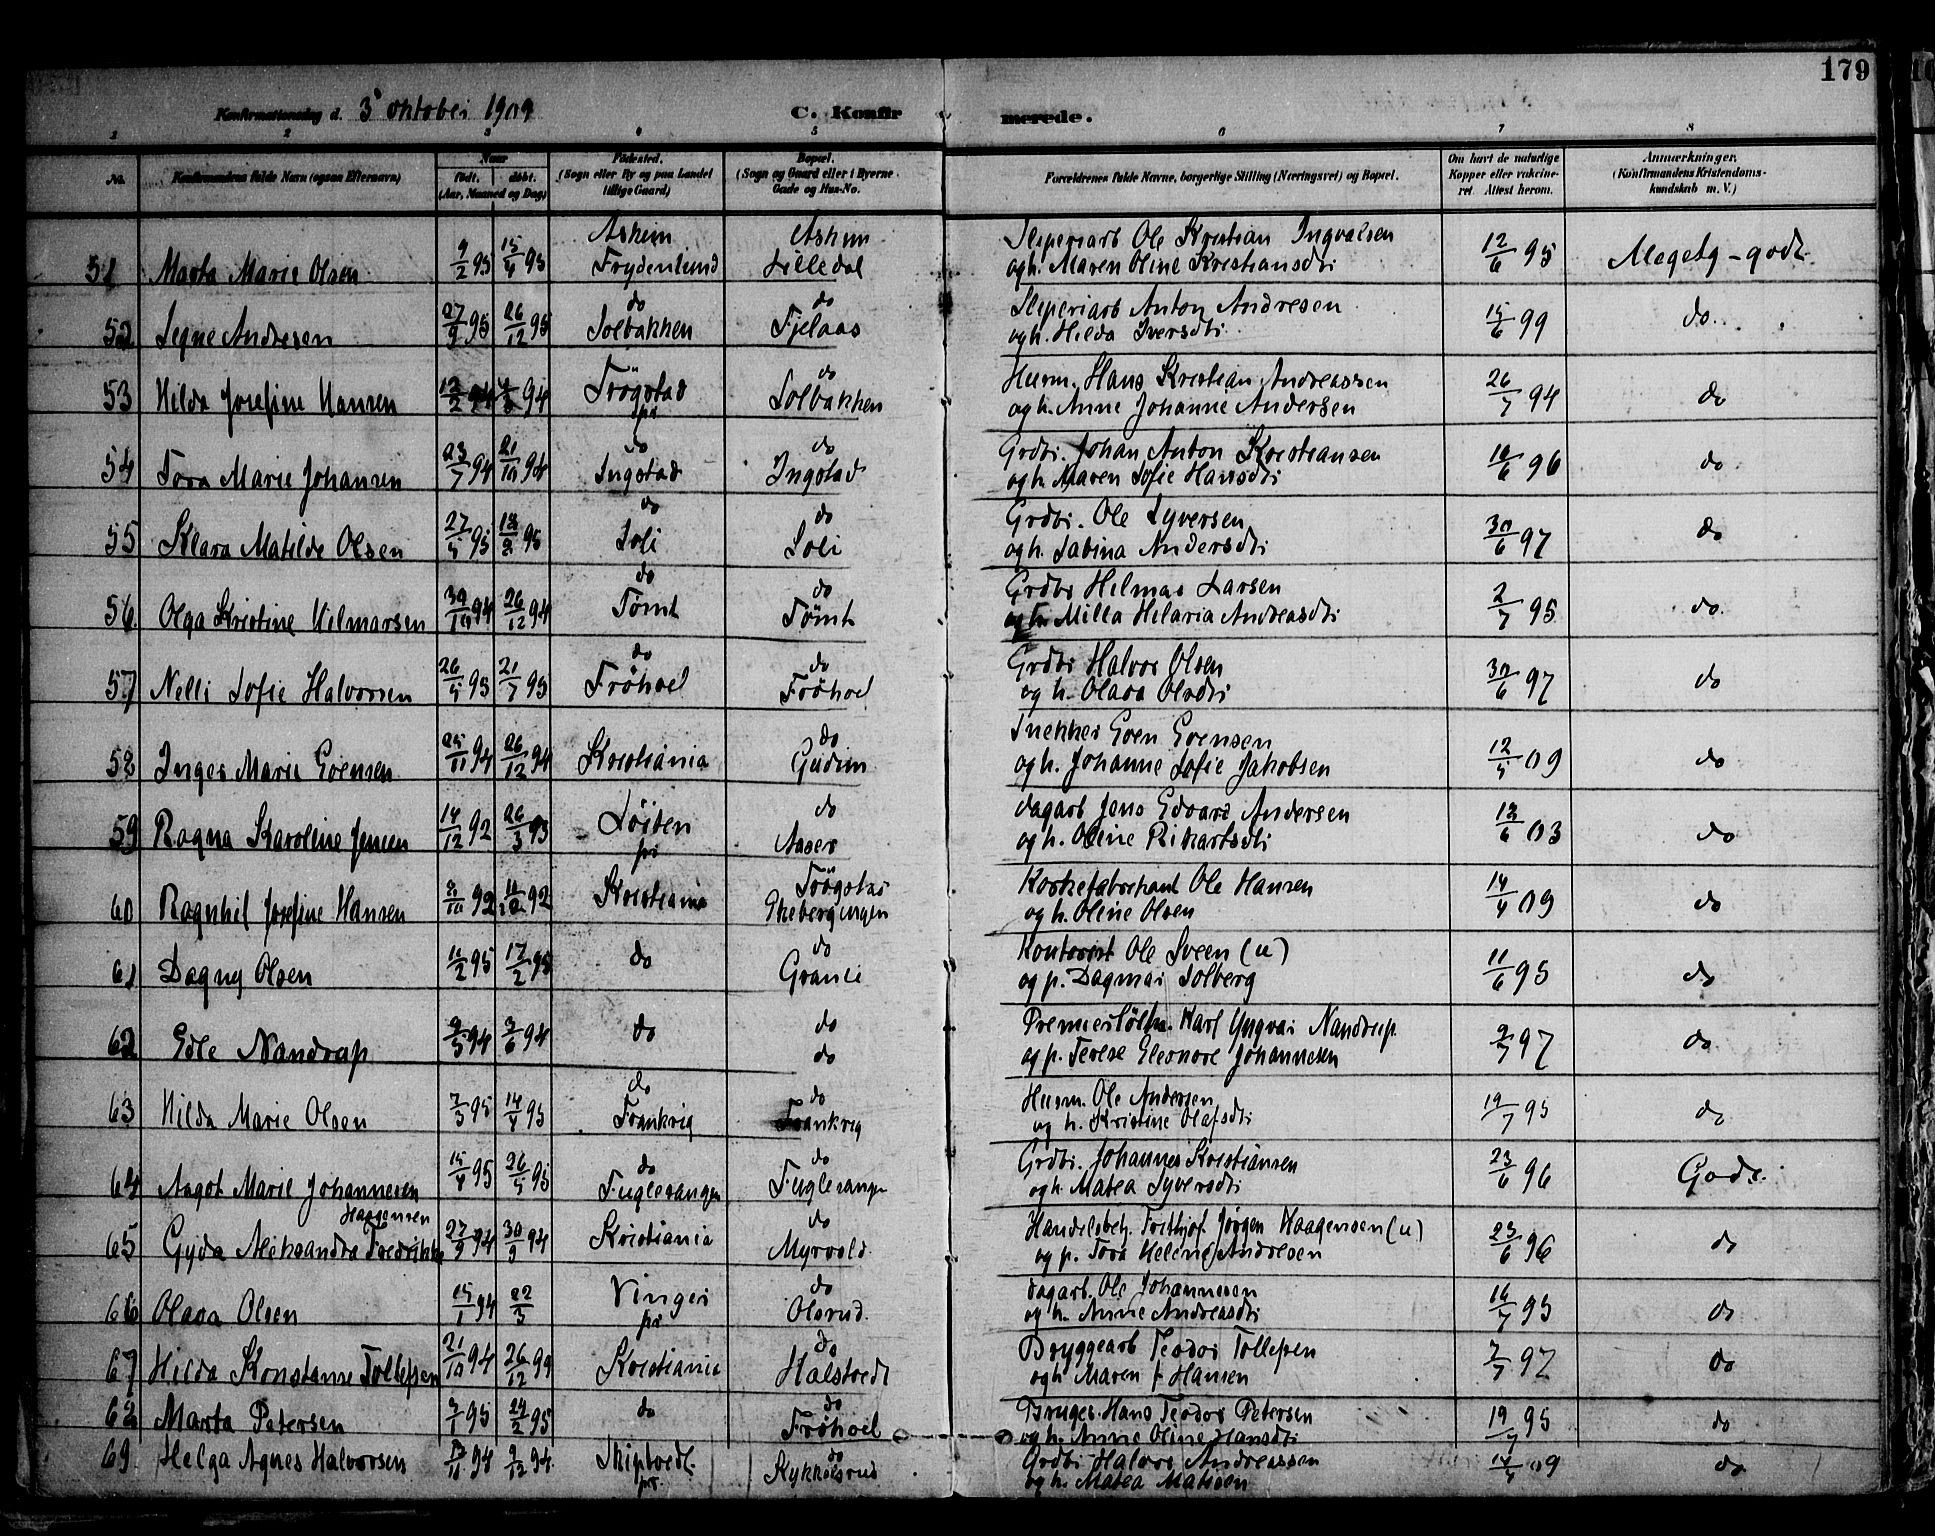 179
Konfirmationsdag d. 3' oktober 1909
C. Konfirmerede.
1 2 3 4 5 6 7 8
No. Konfirmandens fulde Navn (ogsaa Efternavn) Naar født. døbt. (Aar, Maaned og Dag) Fødested. (Sogn eller By og paa Landet tillige Gaard.) Bopæl. (Sogn og Gaard eller i Byerne Gade og Hus-No. Forældrenes fulde Navne, borgerlige Stilling (Næringsvei) og Bopæl. Om havt de naturlige Kopper eller vaccineret. Attest herom. Anmærkninger. (Konfirmandens Kristendomskundskab m. V.)
51 Marta Marie Olsen 9/2 95 15/4 95 Askim Frydenlund Askim Lilledal Sliperiarb Ole Kristian Ingvalsen og h. Maren Oline Kristiansdtr 12/6 95 Megetg-godt
52 Signe Andresen 27/9 95 26/12 95 do Solbakken do Fjelaas Sliperiarb Anton Andresen og h. Hilda Iversdtr. 15/6 99 do.
53 Hilda Josefine Hansen 94 Trögstad pr do Solbakken Husm. Hans Kristian Andreassen og h. Anne Johanne Andersen 26/7 94 do
54 Tora Marie Johansen 23/7 94 21/10 94 do Ingstad do Ingstad Grdbr. Johan Anton Kristiansen og h. Maren Sofie Hansdtr 96 do
55 Klara Matilde Olsen 95 95 do Soli do Soli Grdbr. Ole Syversen og h. Sabina Andersdtr 30/6 97 do
56. Olga Kristine Hilmarsen 30/10 94 26/12 94 do Tömt do Tömt Grdbr Hilmar Larsen og h. Milla Hilaria Andreasdtr 2/7 95 do.
57 Nelli Sofie Halvorsen 26/5 95 21/7 95 do Fröhoel do Fröhoel Grdbr Halvor Olsen og h. Olava Olsdtr 30/6 97 do
58 Inger Marie Evensen 25/11 94 26/12 94 Kristiania do Gudim Snekker Even Evensen og h. Johanne Sofie Jakobsen 12/5 09 do
59 Ragna Karoline Jensen 14/12 92 26/3 93 Löiten pr do Aaser dagarb Jens Edvard Andersen og h. Oline Rikartsdtr 13/6 03 do
60 Ragnhil Josefine Hansen 92 92 Kristiania Trögstad Korkefabrikant Ole Hansen og h. Oline Olsen 14/4 09 do
61 Dagny Olsen 95 17/2 95 do do Granli Kontorist Ole Sveen (u) og p. Dagmar Solberg 11/6 95 do
62 Edle Nandrup 94 3/6 94 do do do Premierlöitn. Karl Yngvar Nandrup og p. Terese Eleonore Johannesen 97 do
63 Hilda Marie Olsen 7/3 95 14/4 95 do Frankrig do Frankrig Husm. Ole Andersen og h. Kristine Olafsdtr 19/7 95 do
64 Aagot Marie Johannesen 15/4 95 26/5 95 do Fuglesangen do Fuglesangen Grdbr. Johannes Kristiansen og h. Matea Syversdtr 23/6 96 Godt.
65 Gyda Aleksandra Fredrikke Haagensen 94 30/9 94 Kristiania do Myrvold Handelsbetj. Frithjof Jørgen Haagensen (u) og p. Tora Helene Andresen 23/6 96 do
66 Olava Olsen 15/1 94 22/3 Vinger pr do Olsrud. dagarb. Ole Johannesen og h. Anne Andreasdtr 95 do
67 Hilda Konstanse Tollefsen 21/10 94 26/12 99 Kristiania do Halstvedt Bryggearb Teodor Tollefsen og h. Maren J Hansen 97 do
68 Marta Petersen 95 24/2 95 do do Fröhoel Bruger. Hans Teodor Petersen og h. Anne Oline Hansdtr 19/7 95 do
69 Helga Agnes Halvorsen 94 9/12 94 Skiptvedt. pr. do Kykkelsrud Grdbr Halvor Andreassen og h. Matea Matisen 14/4 09 do